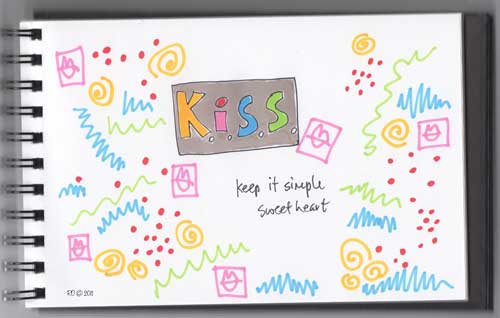 K.i.S.S.
keep it simple
sweet heart
FD © 2011